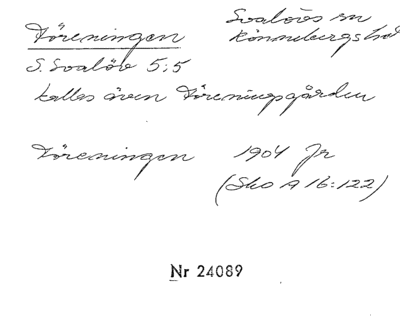 Föreningen
Svalövs sn
Rönnebergs hd
S. Svalöv 5:5
kallas även Föreningsgården
Föreningen 1904 Jr
(Sko A 16:122)
Nr 24089